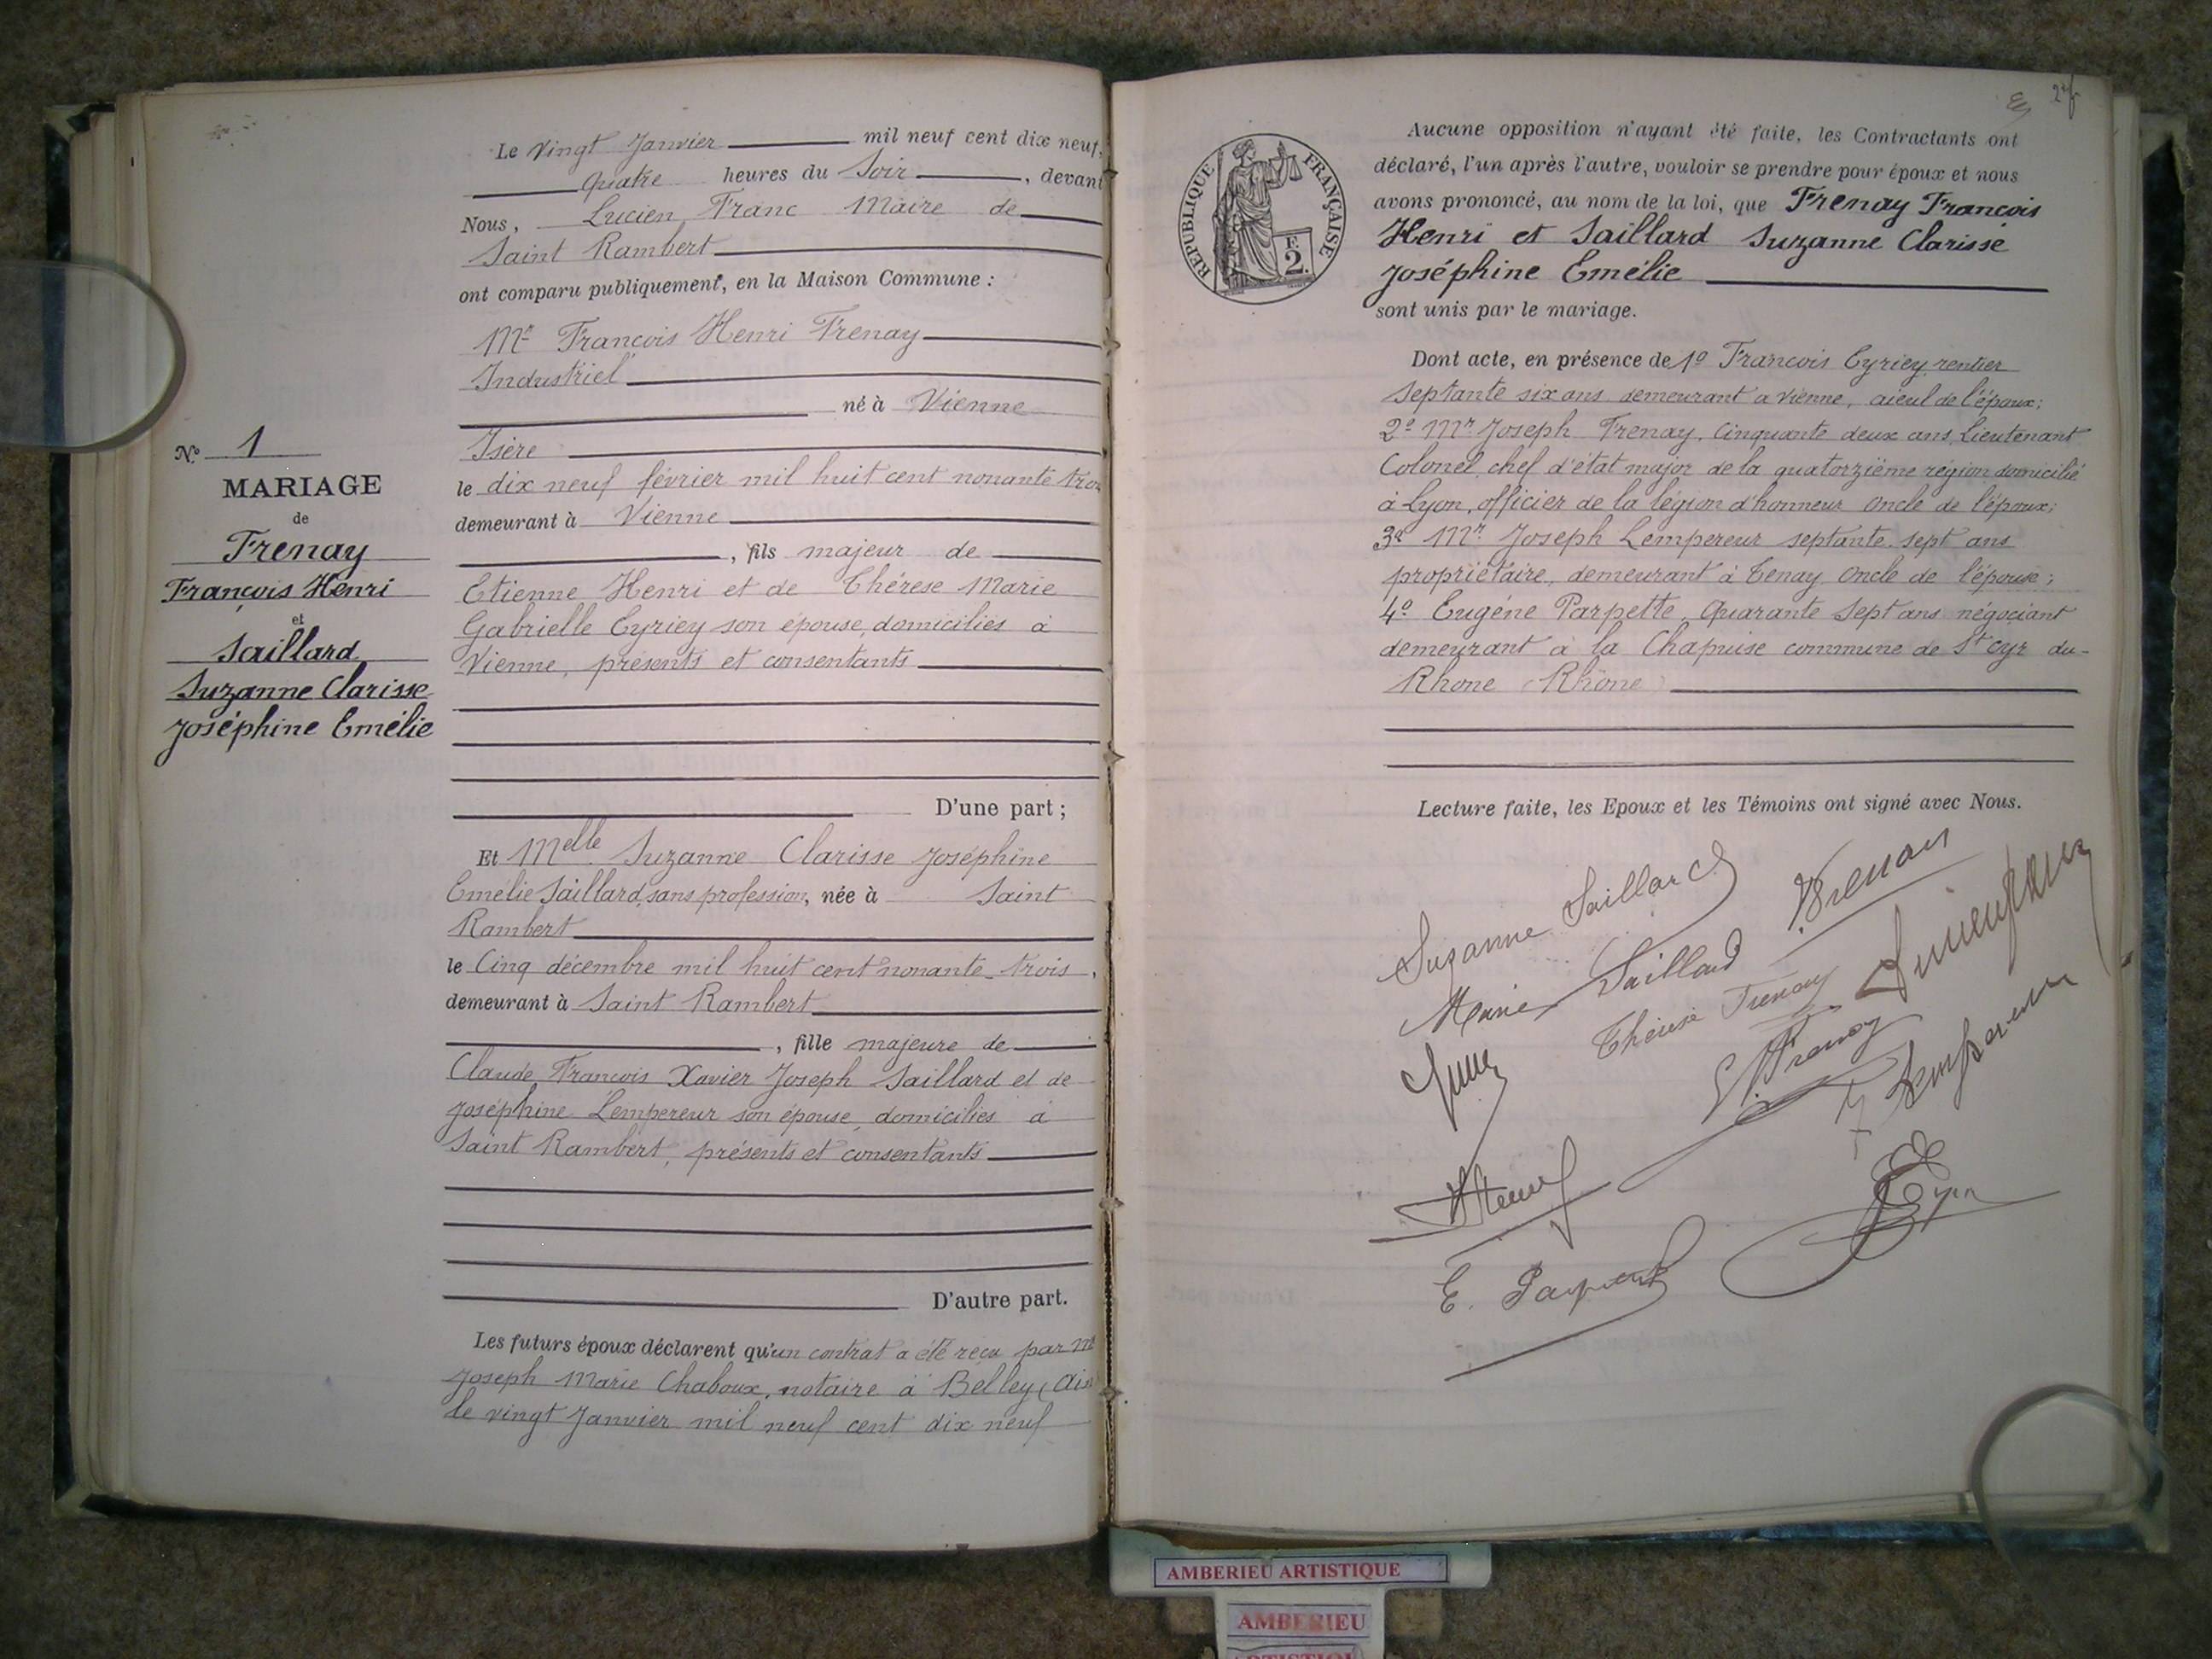 N° 1
MARIAGE
de
Frenay
François Henri
et
Saillard
Suzanne Clarisse
Joséphine Emélie
Le vingt Janvier mil neuf cent dix neuf,
quatre heures du Soir, devant
Nous, Lucien Franc Maire de
Saint Rambert
ont comparu publiquement, en la Maison Commune :
Mr François Henri Frenay
Industriel
né à Vienne
Isère
le dix neuf février mil huit cent nonante trois
demeurant à Vienne
, fils majeur de
Etienne Henri et de Thérese Marie
Gabrielle Eyriey son épouse, domiciliés à
Vienne, présents et consentants
D'une part ;
Et Melle Suzanne Clarisse Joséphine
Emélie Saillard, sans profession, née à Saint
Rambert
le Cinq décembre mil huit cent nonante trois,
demeurant à Saint Rambert
, fille majeure de
Claude François Xavier Joseph Saillard et de
Joséphine Lempereur son épouse, domiciliés à
Saint Rambert, présents et consentants
D'autre part.
Les futurs époux déclarent qu'un contrat a été reçu par Me
Joseph Marie Chaboux, notaire à Belley (Ain
le vingt Janvier mil neuf cent dix neuf
RÉPUBLIQUE FRANÇAISE
F.
2.
Aucune opposition n'ayant été faite, les Contractants ont
déclaré, l'un après l'autre, vouloir se prendre pour époux et nous
avons prononcé, au nom de la loi, que Frenay François
Henri et Saillard Suzanne Clarisse
Joséphine Emélie
sont unis par le mariage.
Dont acte, en présence de 1° François Eyriey rentier
septante six ans demeurant a Vienne, aieul de l'époux;
2° Mr Joseph Frenay, Cinquante deux ans, Lieutenant
Colonel, chef d'état major de la quatorzième région domicilié
à Lyon, officier de la légion d'honneur Oncle de l'époux;
3° Mr Joseph Lempereur septante sept ans
propriétaire, demeurant à Tenay, Oncle de l'épouse;
4° Eugéne Parpette, Quarante Sept ans négociant
demeurant à la Chapuise commune de St Cyr du-
Rhone (Rhône)
Lecture faite, les Epoux et les Témoins ont signé avec Nous.
Suzanne Saillard
Frenay
Marie Saillard
Thérèse Frenay
Frenay
J Lempereur
E. Parpette
AMBERIEU ARTISTIQUE
AMBERIEU
ARTISTIQUE